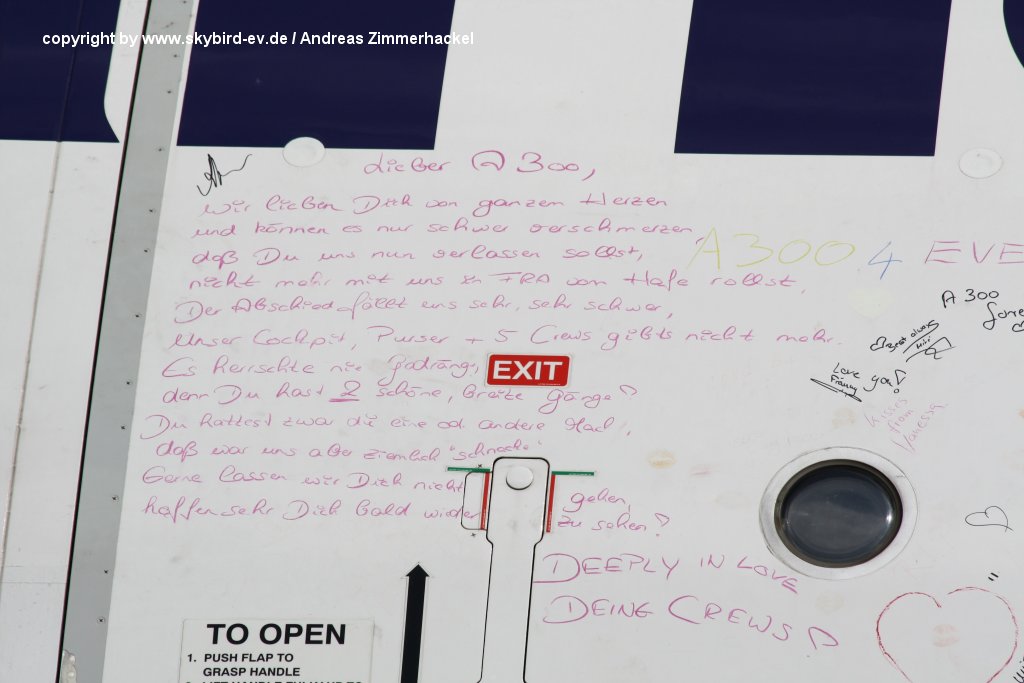 copyright by www.skybird-ev.de / Andreas Zimmerhackel
Lieber A300,
wir lieben Dich von ganzem Herzen
und können es nur schwer verschmerzen,
daß Du uns nun verlassen sollst,
nicht mehr mit uns in FRA vom Hofe rollst.
Der Abschied fällt uns sehr, sehr schwer,
Unser Cockpit, Purser + 5 Crews gibts nicht mehr.
Es herrschte nie Gedränge,
denn Du hast 2 schöne, breite Gänge
Du hattest zwar die eine od. andere Mack',
daß war uns aber ziemlich "schnacke"
Gerne lassen wir Dich nicht gehen,
hoffen sehr Dich bald wieder zu sehen!
DEEPLY IN LOVE
DEINE CREWS
A300 4 EVE
A 300
Best always
Love you!
Franny
Kisses
from
Vanessa
EXIT
TO OPEN
1. PUSH FLAP TO
GRASP HANDLE